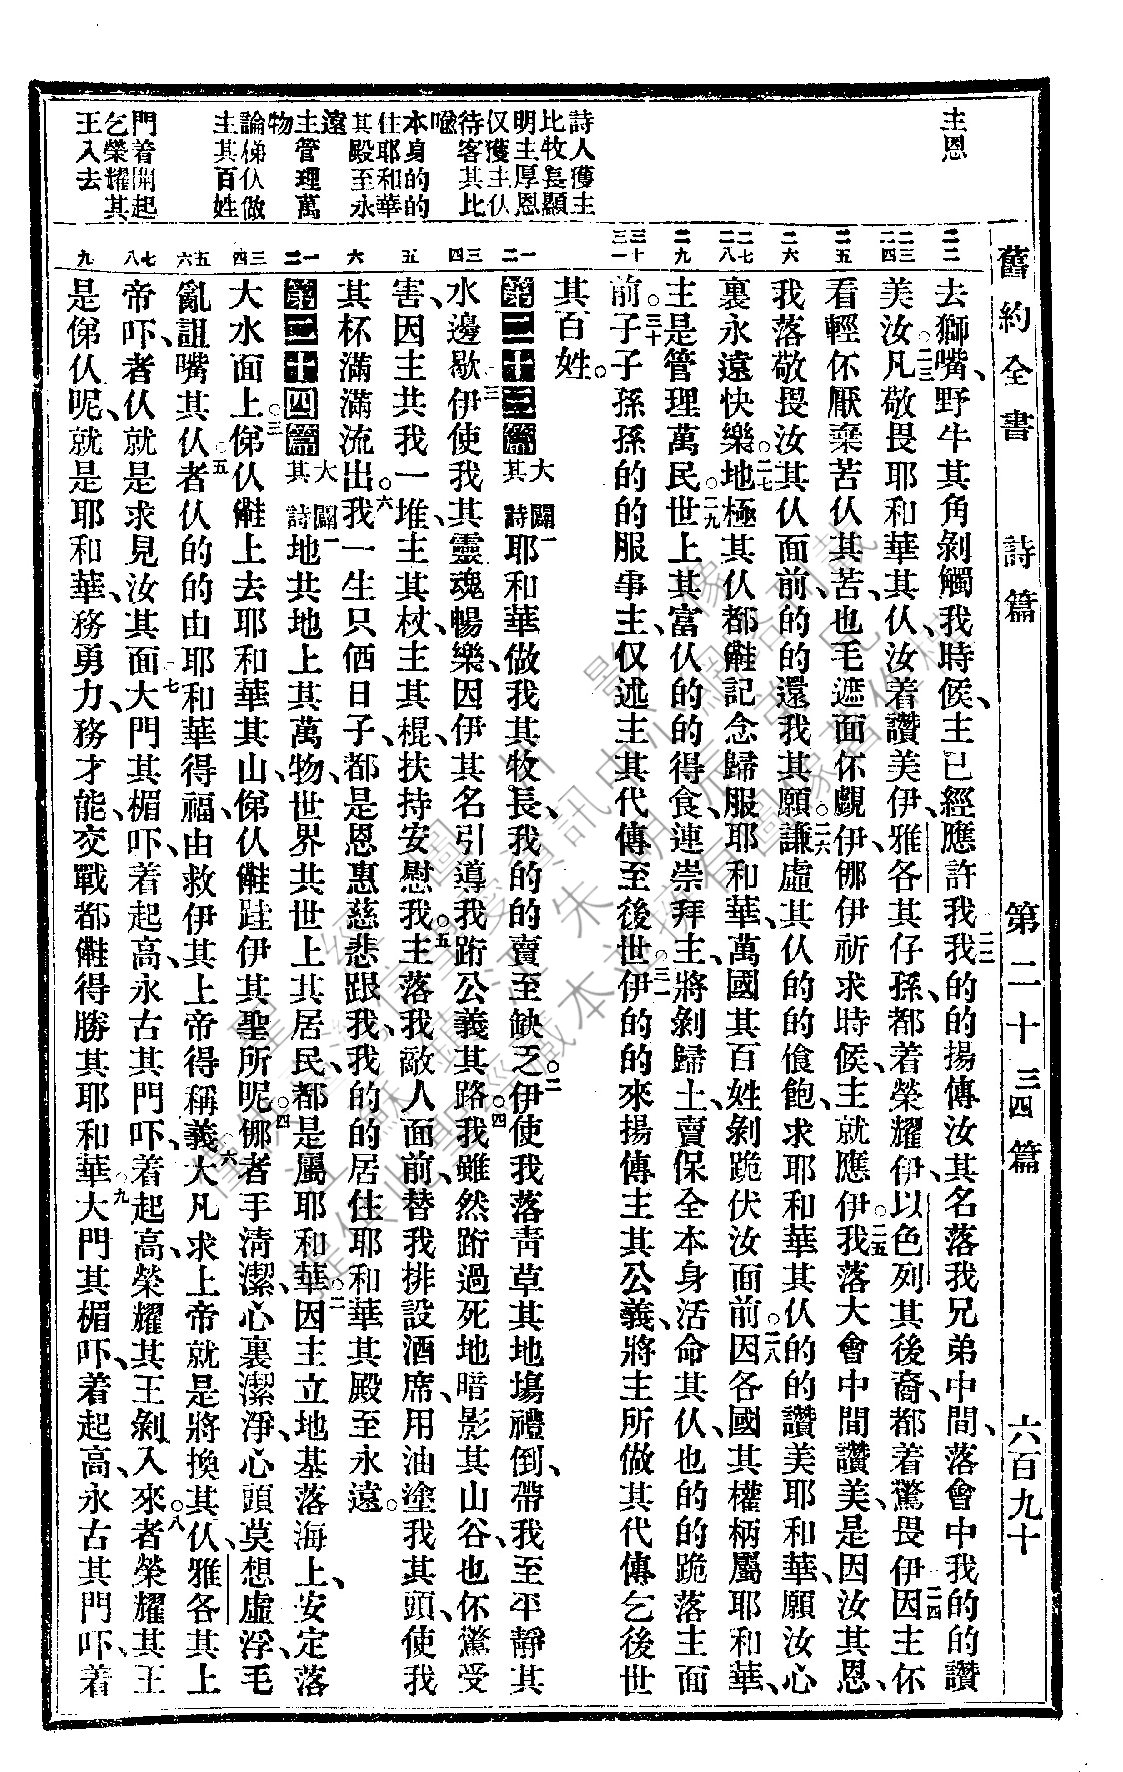 舊約全書 詩篇 第二十三四篇 六百九十
主恩
詩人獲主
比牧長顯
明主厚恩
仅獲主仅
待客其比
喩
本身的的
住耶和華
其殿至永
遠
主管理萬
物
論悌仅做
主其百姓
門着開起
乞榮耀其
王入去
去獅嘴、野牛其角剝觸我時候、主已經應許我我的的揚傳汝其名落我兄弟中間、落會中我的的讚
美汝凡敬畏耶和華其仅、汝着讚美伊、雅各其仔孫、都着榮耀伊以色列其後裔、都着驚畏伊因主伓
看輕伓厭棄苦仅其苦、也毛遮面伓覷伊、㑚伊祈求時候、主就應伊我落大會中間讚美、是因汝其恩、
我落敬畏汝其仅面前、的的還我其願。謙虛其仅的的飽、求耶和華其仅的的讚美耶和華、願汝心
裏永遠快樂。地極其仅都䧹記念歸服耶和華、萬國其百姓、剝跪伏汝面前。因各國其權柄屬耶和華、
主是管理萬民。世上其富仅的的得食、連崇拜主、將剝歸土、賣保全本身活命其仅、也的的跪落主面
前。子子孫孫的的服事主、仅述主其代傳至後世。伊的的來揚傳主其公義、將主所做其代傳乞後世
其百姓。
第二十三篇 大闢其詩 一耶和華做我其牧長、我的的賣至缺乏。伊使我落靑草其地塲禮倒、帶我至平靜其
水邊歇伊使我其靈魂暢樂、因伊其名引導我跡公義其路。我雖然跡過死地暗影其山谷、也伓驚受
害、因主共我一堆、主其杖、主其棍、扶持安慰我。主落我敵人面前、替我排設酒席、用油塗我其頭、使我
其杯滿滿流出。我一生只㑚日子、都是恩惠慈悲跟我、我的的居住耶和華其殿至永遠。
第二十四篇 大闢其詩 一地共地上其萬物、世界共世上其居民、都是屬耶和華。因主立地基落海上、安定落
大水面上。悌仅䧹上去耶和華其山、悌仅䧹跬伊其聖所呢。㑚者手淸潔、心裏潔淨、心頭莫想虛浮、毛
亂詛嘴其仅。者仅的的由耶和華得福、由救伊其上帝得稱義。大凡求上帝就是將換其仅、雅各其上
帝吓、者仅就是求見汝其面。大門其楣吓、着起高、永古其門吓、着起高、榮耀其王剝入來。者榮耀其王
是悌仅呢、就是耶和華、務勇力、務才能、交戰都䧹得勝其耶和華。大門其楣吓、着起高、永古其門吓、着